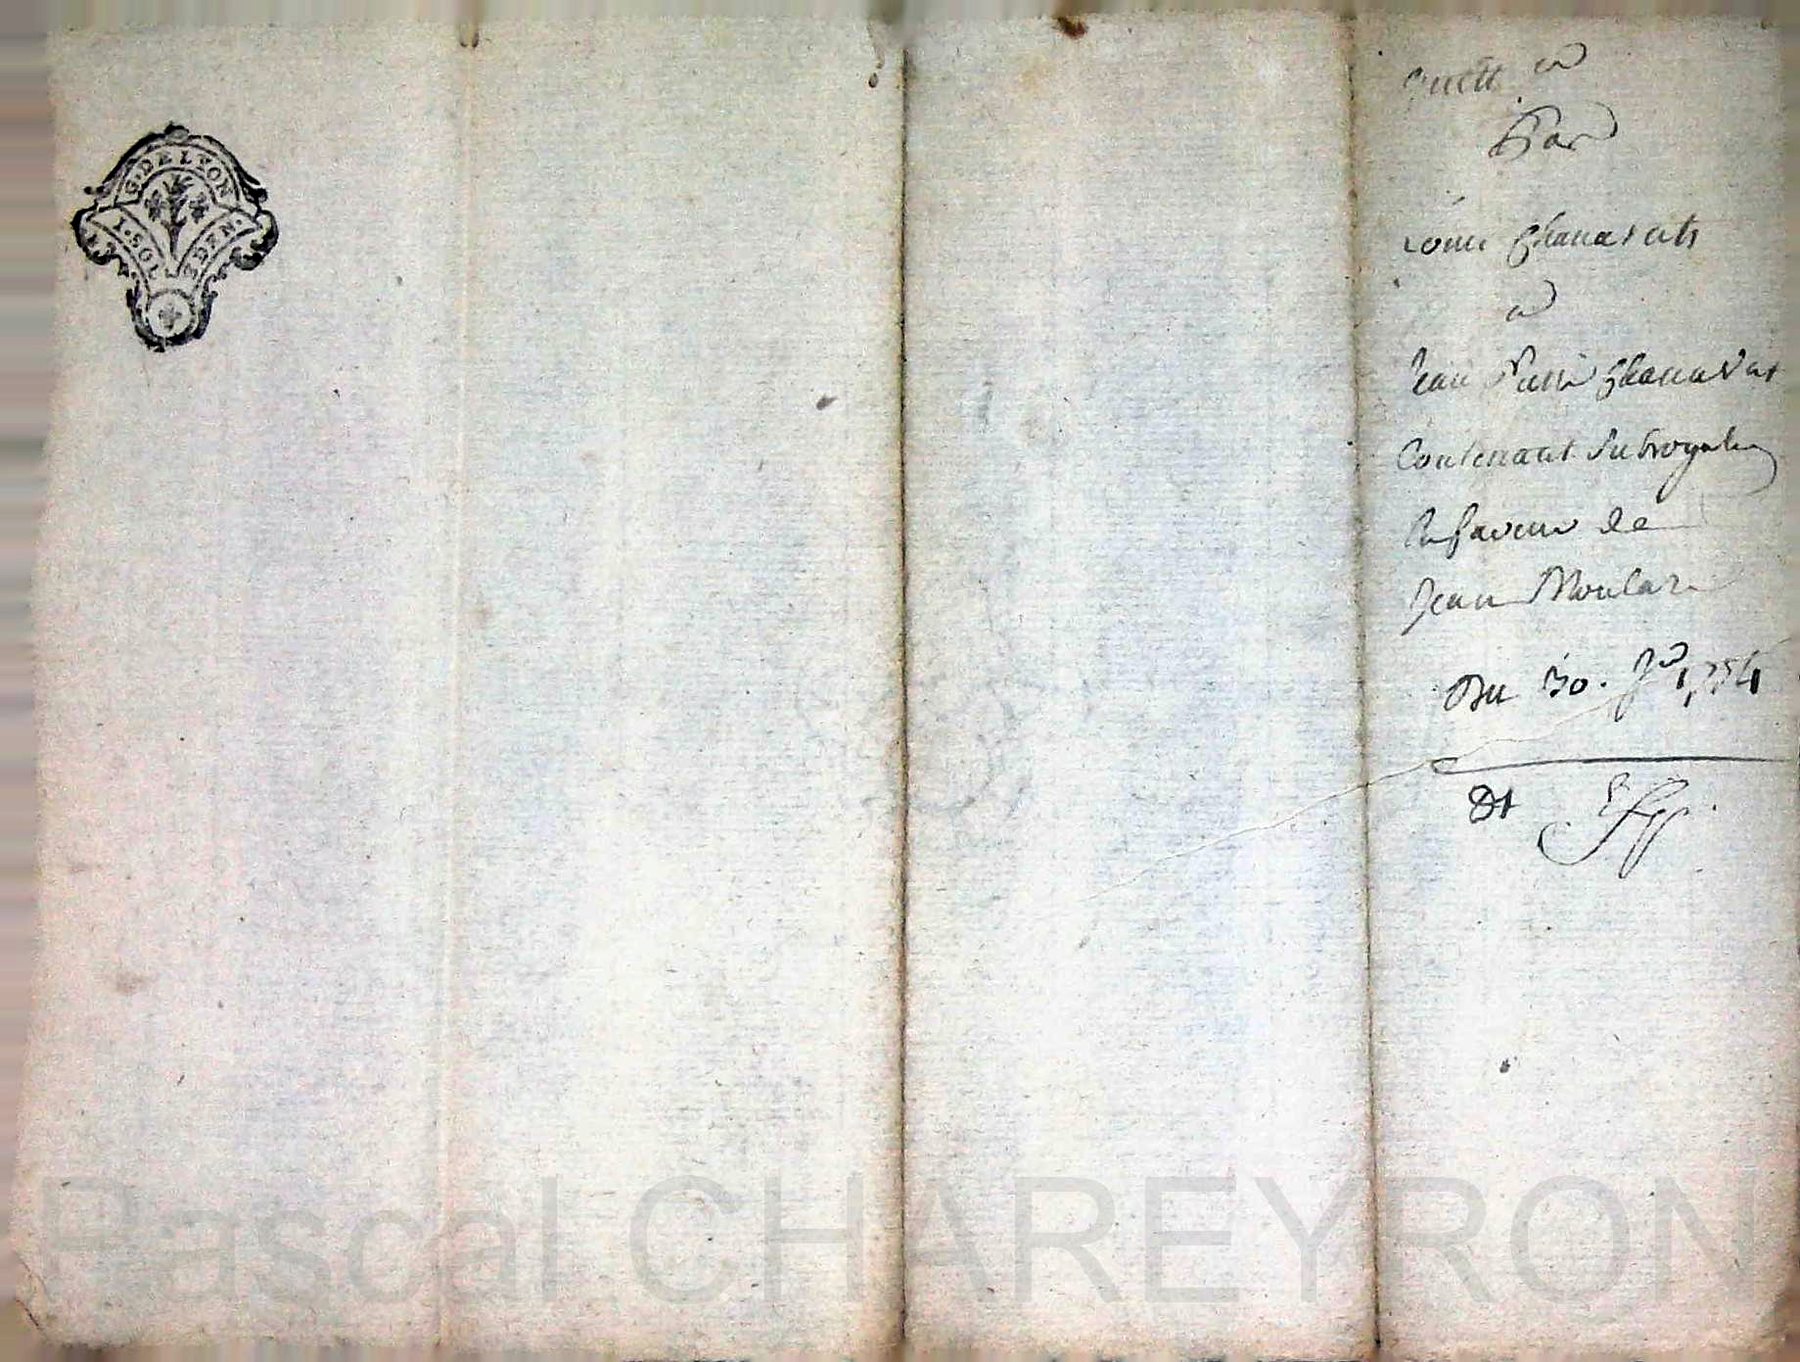 G. DE LYON
1. SOL 8 DEN.
quitt
Par
Louis Chanavat
a
Jean Pierre Chanavat
Contenant Subrogation
En faveur de
Jean Moulard
Du 30. 1754
Dt
Pascal CHAREYRON